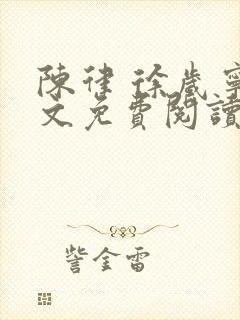 陳律 徐歲寧
文免費閱讀
訾金雷